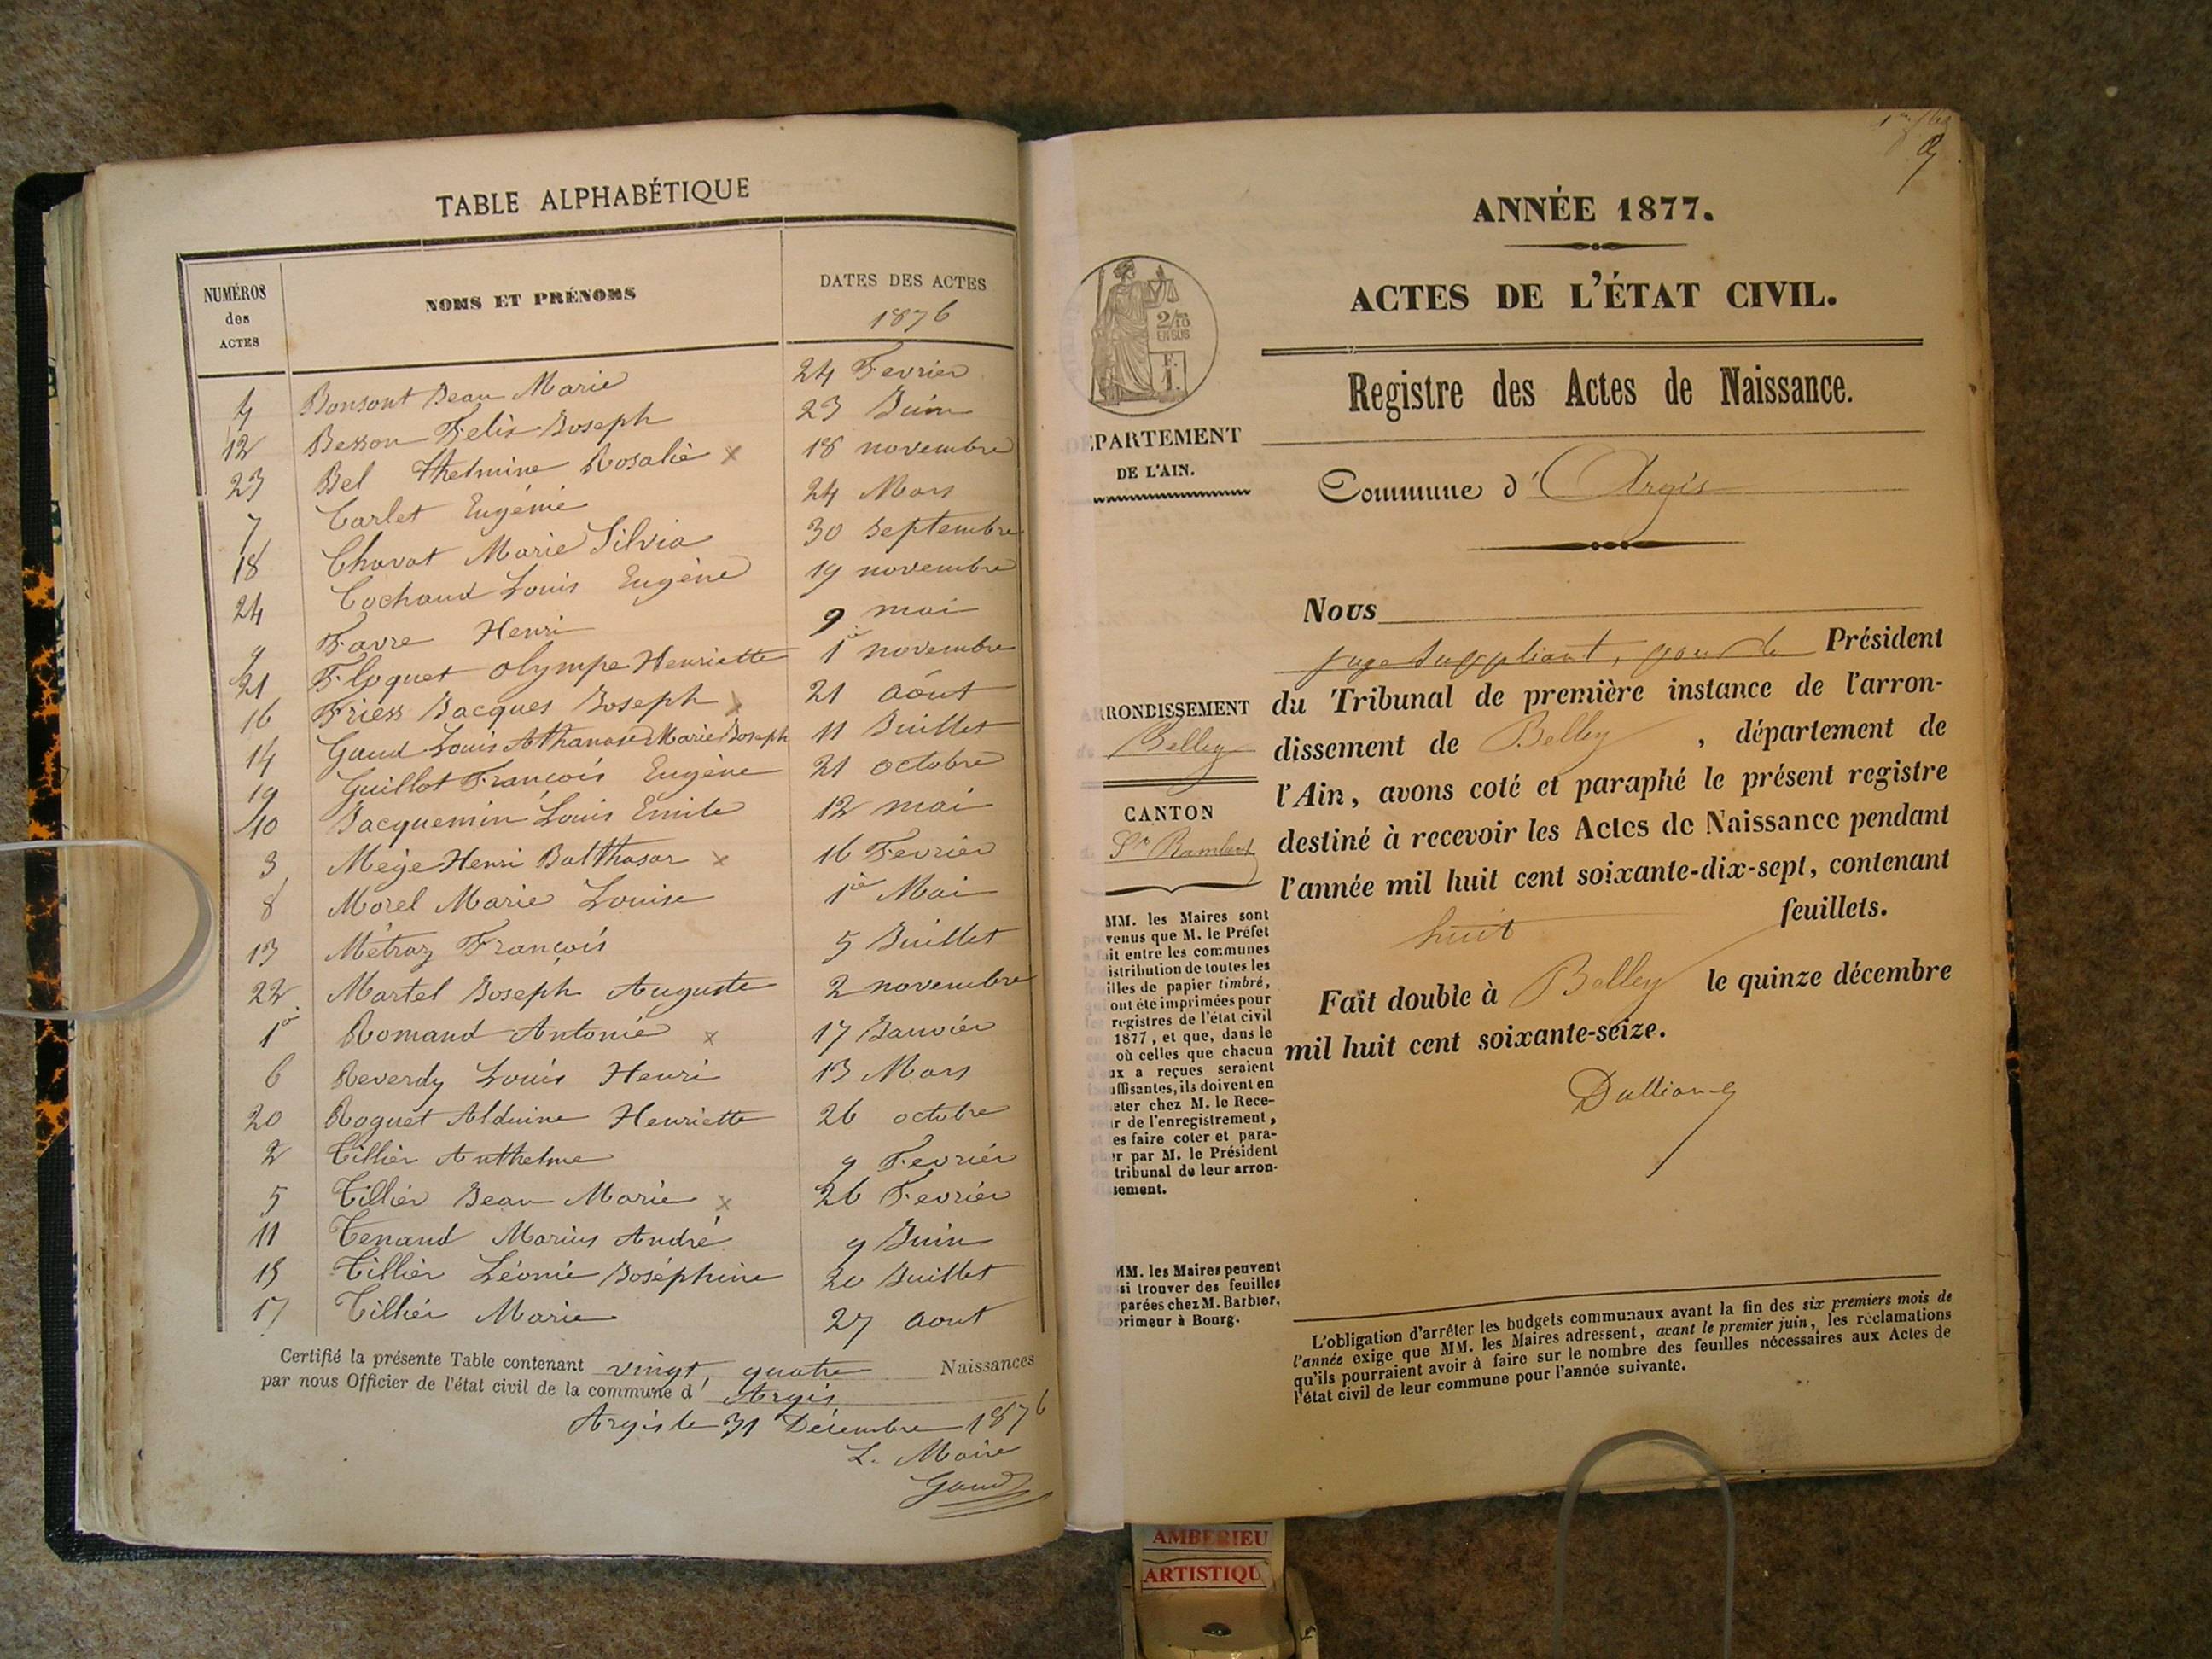 TABLE ALPHABÉTIQUE
NUMÉROS des ACTES
NOMS ET PRÉNOMS
DATES DES ACTES
1876
4 Bonsont Jean Marie 24 Fevrier
12 Besson Felix Joseph 23 Juin
23 Bel Thelmine Rosalie x 18 novembre
7 Carlet Eugénie 24 Mars
18 Chavat Marie Silvia 30 Septembre
24 Cochaud Louis Eugène 19 novembre
9 Favre Henri 9 mai
21 Floquet Olympe Henriette 1er novembre
16 Friess Jacques Joseph x 21 Aôut
14 Gaud Louis Athanase Marie Joseph 11 Juillet
19 Guillot François Eugène 21 octobre
10 Jacquemin Louis Emile 12 mai
3 Mège Henri Balthasar x 16 Fevrier
8 Morel Marie Louise 1er Mai
13 Métraz François 5 Juillet
22 Martel Joseph Auguste 2 novembre
1er Romand Antonie x 17 Janvier
6 Reverdy Louis Henri 13 Mars
20 Roguet Alduine Henriette 26 octobre
2 Tillier Anthelme 9 Fevrier
5 Tillier Jean Marie x 26 Fevrier
11 Tenand Marius André 9 Juin
15 Tillier Léonie Joséphine 20 Juillet
17 Tillier Marie 27 Aout
Certifié la présente Table contenant vingt, quatre Naissances
par nous Officier de l'état civil de la commune d' Argis
Argis le 31 Décembre 1876
L. Maire
Gaud
ANNÉE 1877.
ACTES DE L'ÉTAT CIVIL.
2/10
EN SUS
Registre des Actes de Naissance.
DÉPARTEMENT
DE L'AIN.
Commune d' Argis
Nous
juge suppléant, pour le Président
du Tribunal de première instance de l'arron-
dissement de Belley, département de
l'Ain, avons coté et paraphé le présent registre
destiné à recevoir les Actes de Naissance pendant
l'année mil huit cent soixante-dix-sept, contenant
huit feuillets.
Fait double à Belley le quinze décembre
mil huit cent soixante-seize.
ARRONDISSEMENT
Belley
CANTON
St Rambert
MM. les Maires sont
venus que M. le Préfet
it entre les communes
istribution de toutes les
illes de papier timbré,
ont été imprimées pour
registres de l'état civil
1877, et que, dans le
où celles que chacun
ux a reçues seraient
uffisantes, ils doivent en
eter chez M. le Rece-
r de l'enregistrement,
es faire coter et para-
er par M. le Président
tribunal de leur arron-
sement.
MM. les Maires peuvent
si trouver des feuilles
parées chez M. Barbier,
primeur à Bourg.
L'obligation d'arrêter les budgets communaux avant la fin des six premiers mois de
l'année exige que MM. les Maires adressent, avant le premier juin, les réclamations
qu'ils pourraient avoir à faire sur le nombre des feuilles nécessaires aux Actes de
l'état civil de leur commune pour l'année suivante.
AMBERIEU
ARTISTIQU